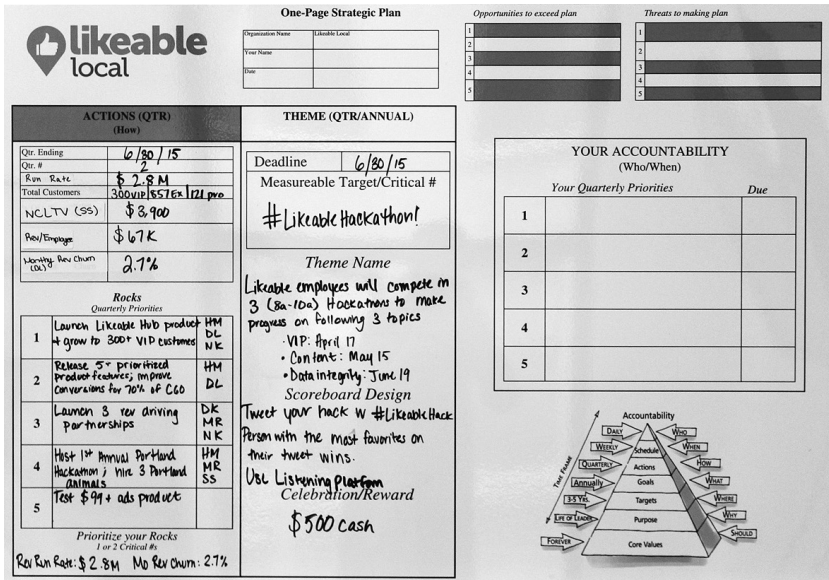 likeable
local
One-Page Strategic Plan
Organization Name Likeable Local
Your Name
Date
Opportunities to exceed plan
1
2
3
4
5
Threats to making plan
1
2
3
4
5
ACTIONS (QTR)
(How)
Qtr. Ending 6/30/15
Qtr. # 2
Run Rate $2.8M
Total Customers 300VIP|557Ex|121 pro
NCLTV (SS) $3,900
Rev/Employee $67K
Monthly Rev Churn (DL) 2.7%
Rocks
Quarterly Priorities
1 Launch Likeable Hub product HM
+ grow to 300+ VIP customes DL
NK
2 Release 5+ prioritized HM
product features; improve
conversions for 70% of CGO DL
3 Launch 3 rev driving DK
partnerships MR
NK
4 Host 1st Annual Portland HM
Hackathon; hire 3 Portland MR
animals SS
5 Test $99+ ads product
Prioritize your Rocks
1 or 2 Critical #s
Rev Run Rate: $2.8M Mo Rev Churn: 2.7%
THEME (QTR/ANNUAL)
Deadline 6/30/15
Measureable Target/Critical #
#LikeableHackathon!
Theme Name
Likeable employees will compete in
3 (8a-10a) Hackathons to make
progress on following 3 topics
• VIP: April 17
• Content: May 15
• Data integrity: June 19
Scoreboard Design
Tweet your hack w #LikeableHack
Person with the most favorites on
their tweet wins.
Use Listening platform
Celebration/Reward
$500 cash
YOUR ACCOUNTABILITY
(Who/When)
Your Quarterly Priorities Due
1
2
3
4
5
Accountability
TIME FRAME
DAILY Schedule WHO
WEEKLY Actions WHEN
QUARTERLY Goals HOW
Annually Targets WHAT
3-5 Yrs. Purpose WHERE
LIFE OF LEADER Core Values WHY
FOREVER SHOULD